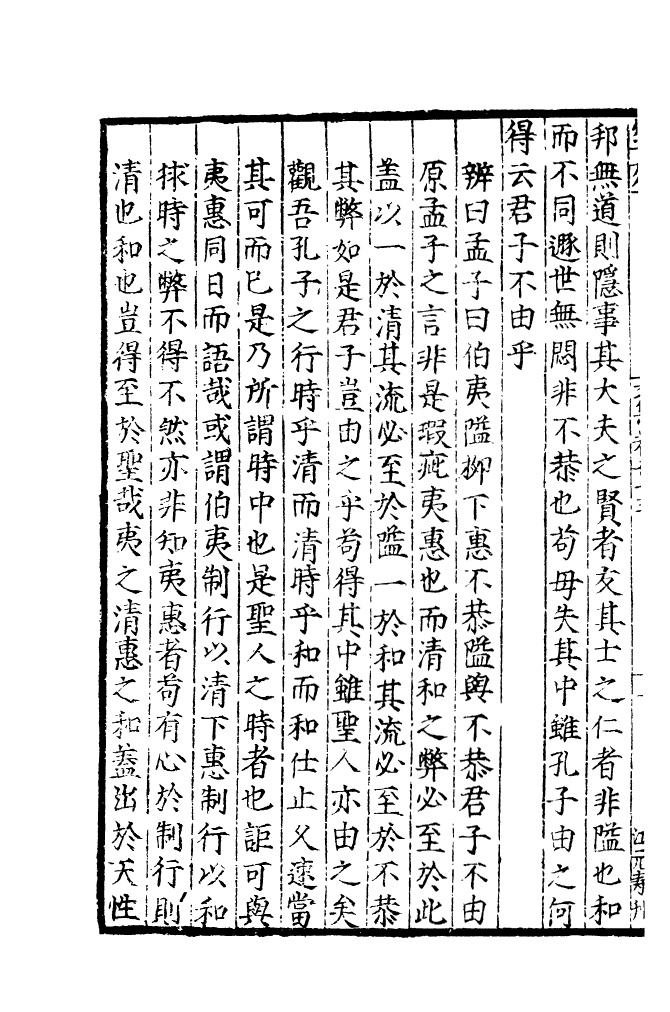 邦無道則隱事其大夫之賢者友其士之仁者非隘也和
而不同遯世無悶非不恭也苟毋失其中雖孔子由之何
得云君子不由乎
辨曰孟子曰伯夷隘柳下惠不恭隘與不恭君子不由
原孟子之言非是瑕疵夷惠也而清和之弊必至於此
盖以一於清其流必至於隘一於和其流必至於不恭
其弊如是君子豈由之乎苟得其中雖聖人亦由之矣
觀吾孔子之行時乎清而清時乎和而和仕止久速當
其可而已是乃所謂時中也是聖人之時者也詎可與
夷惠同日而語哉或謂伯夷制行以清下惠制行以和
捄時之弊不得不然亦非知夷惠者苟有心於制行則
清也和也豈得至於聖哉夷之清惠之和葢出於天性